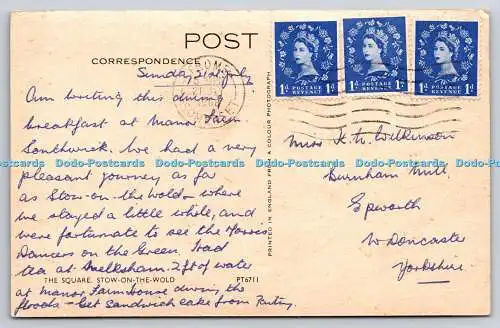 POST
CORRESPONDENCE
Sunday 21st July
Am writing this during
breakfast at Manor Farm
Southwick. We had a very
pleasant journey as far
as Stow-on-the-Wold - where
we stayed a little while, and
were fortunate to see the Morris
Dancers on the Green. Had
tea at Melksham. 2ft of water
at Manor Farmhouse during the
floods - Get Sandwich cake from Pantry.
THE SQUARE, STOW-ON-THE-WOLD PT6711
PRINTED IN ENGLAND FROM A COLOUR PHOTOGRAPH
1D POSTAGE REVENUE 1D
1D POSTAGE REVENUE 1D
1D POSTAGE REVENUE 1D
Miss K. M. Wilkinson
Burnham Mill,
Epworth
Nr Doncaster
Yorkshire.
Dodo-Postcards Dodo-Postcards Dodo-Postcards Dodo-Postcards Dodo-Postcards Dodo-Postcards